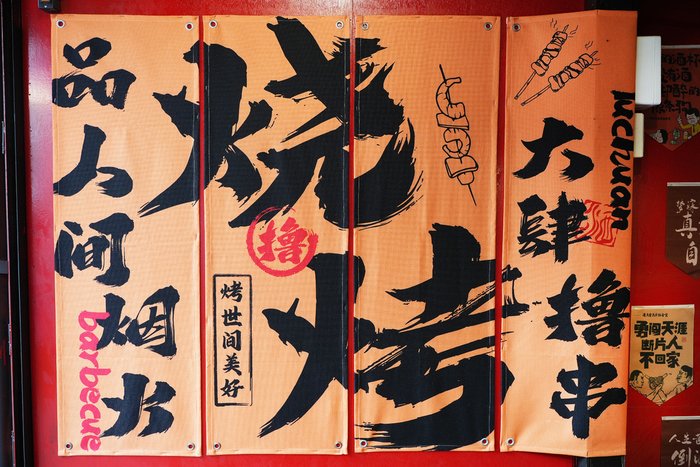 品人间烟火
barbecue
烧烤
撸
烤世间美好
大肆撸串
wchuan
勇闯天涯
断片人
不回家